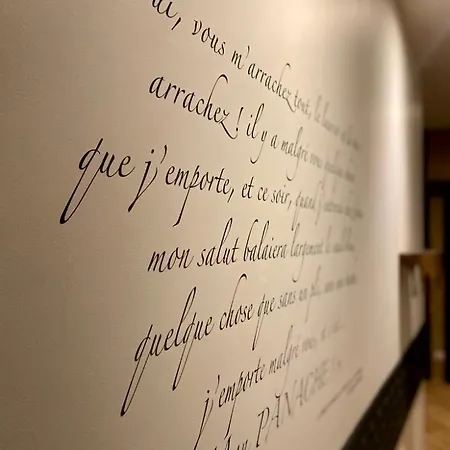 vous m'arrachez tout, le laurier et la
arrachez ! il y a malgré vous quelque chose
que j'emporte, et ce soir, quand j'entrerai
mon salut balaiera largement le seuil
quelque chose que sans un pli, sans une tache
j'emporte malgré vous, et c'est
Mon PANACHE !